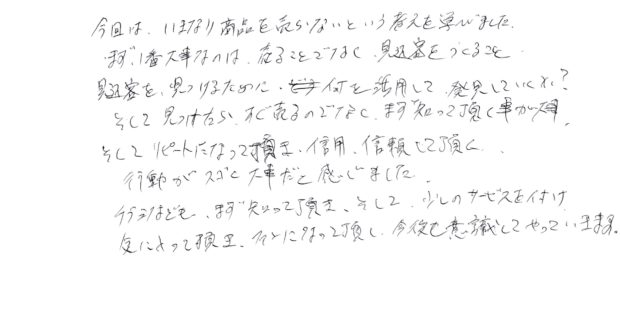 今回は、いきなり商品を売らないという考えを学びました
まず、1番大事なのは、売ることでなく、見込客をつくること
見込客を、見つけるために、何を活用して、発見していくか?
そして見つけたら、すぐ売るのでなく、まず知って頂く事が大事、
そしてリピートになって頂き、信用、信頼して頂く、
行動がスゴく大事だと感じました
チラシなども、まず知って頂き、そして、少しのサービスを付け
気に入って頂き、ファンになって頂く、今後も意識してやっていきます。